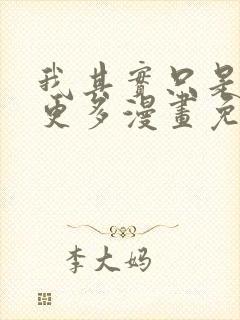 我其實只是
更多漫畫免
李大妈